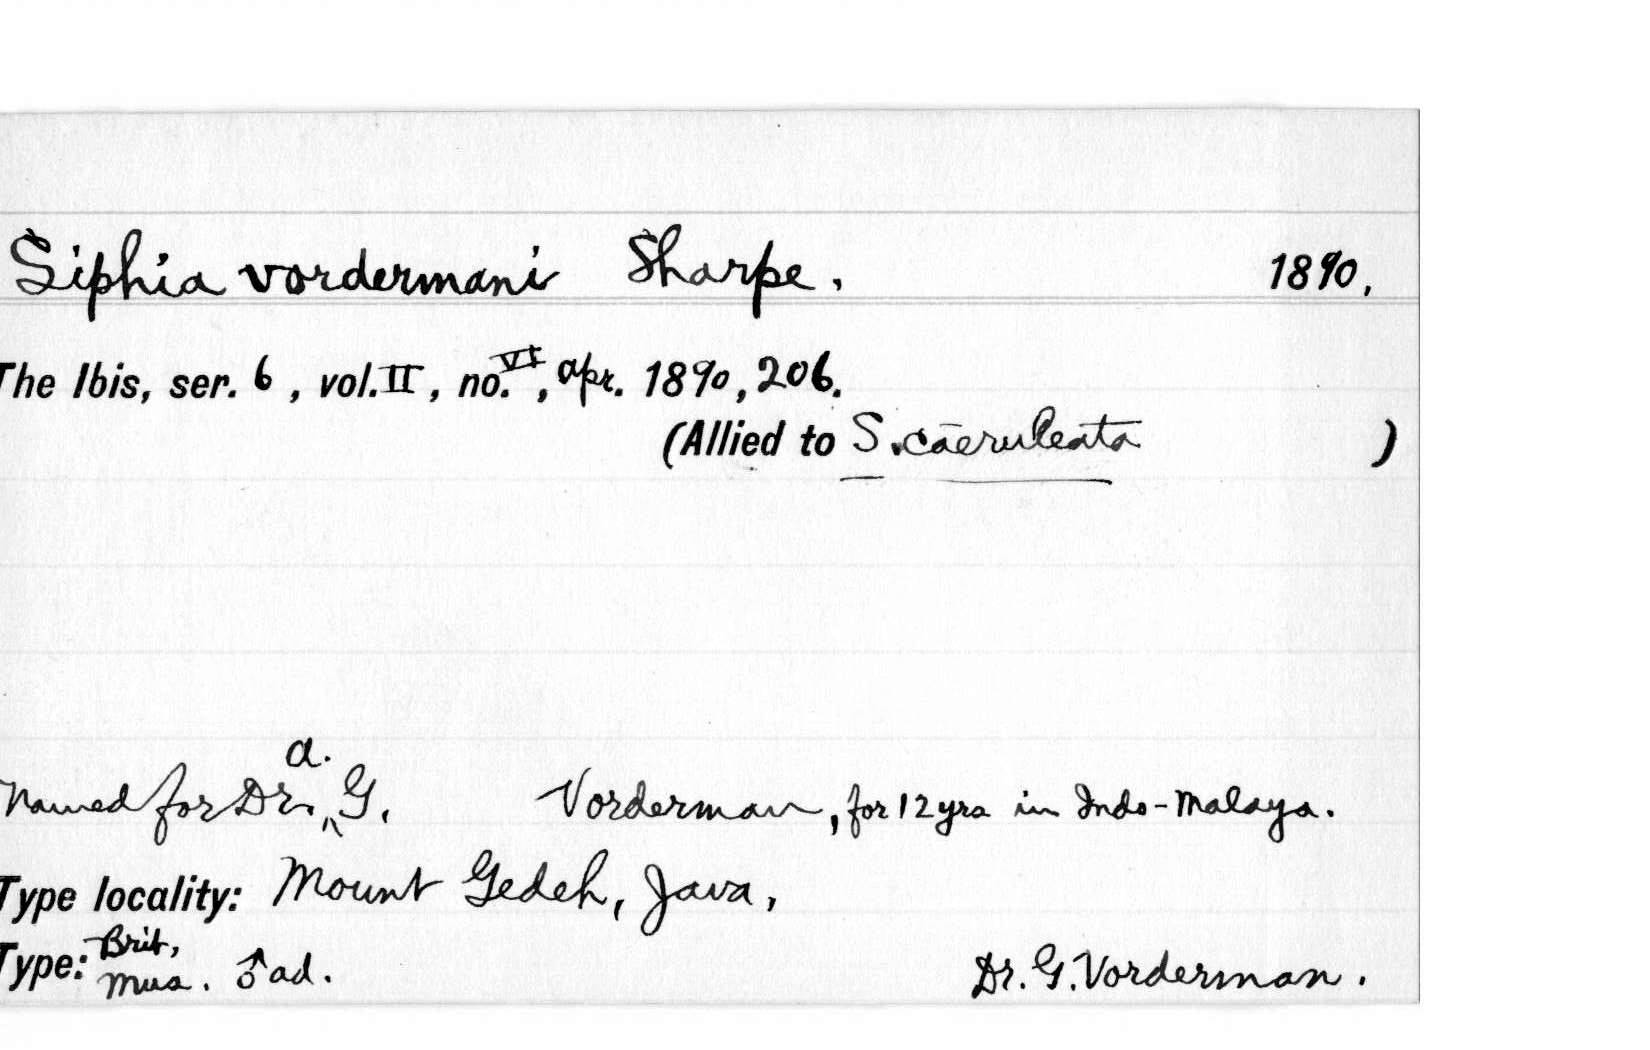 Siphia vordermani Sharpe. 1890.
The Ibis, ser. 6, vol. II, no. VI, Apr. 1890, 206.
(Allied to S. caeruleata )
Named for Dr. A. G. Vorderman, for 12 yrs in Indo-Malaya.
Type locality: Mount Gedeh, Java,
Type: Brit, Mus. ♂ ad. Dr. G. Vorderman.